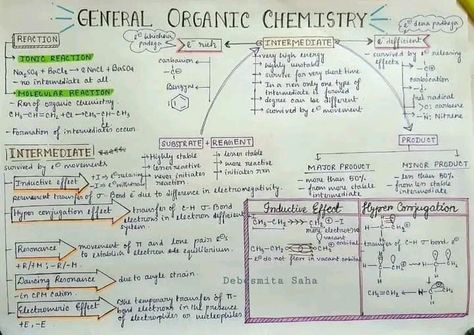 GENERAL ORGANIC CHEMISTRY
REACTION
IONIC REACTION
Na2SO4 + BaCl2 → 2NaCl + BaSO4
- no intermediate at all
MOLECULAR REACTION
- Rxn of organic chemistry
- Formation of intermediates occur
e⊖ rich
carbanion
Benzyne
INTERMEDIATE
- very high energy
- highly unstable
- survive for very short time
- In a rxn only one type of
intermediate is formed
- degree can be different
- survived by e⊖ movement
e⊖ dena padega
e⊖ deficient
- survived by e⊖ releasing
effects
- carbocation
- free radical
carbene
Nitrene
SUBSTRATE + REAGENT
- Highly stable
- less reactive
- never initiates
reaction
- lesser stable
- more reactive
- initiates rxn
PRODUCT
MAJOR PRODUCT
- more than 50%
- from more stable
intermediate
MINOR PRODUCT
- less than 50%
- from less stable
intermediate
INTERMEDIATE
survived by e⊖ movements
Inductive effect
+I → e⊖ releasing
-I → e⊖ withdrawal
permanent transfer of σ-Bond e⊖ due to difference in electronegativity
Hyper conjugation effect
transfer of C-H σ-Bond
electrons in electron deficient
system.
Resonance
movement of π and lone pair e⊖s
to establish electron equilibrium.
+R/+M ; -R/-M
Dancing Resonance
due to angle strain.
- in CPM cation
Electromeric Effect
the temporary transfer of π-
bond electrons in the presence
of electrophiles or nucleophiles
+E, -E
Inductive Effect
more electro⊖
vacant
vacant orbital
e⊖ do not flow in vacant orbital
Hyper Conjugation
transfer of C-H σ bond e⊖
Debosmita Saha